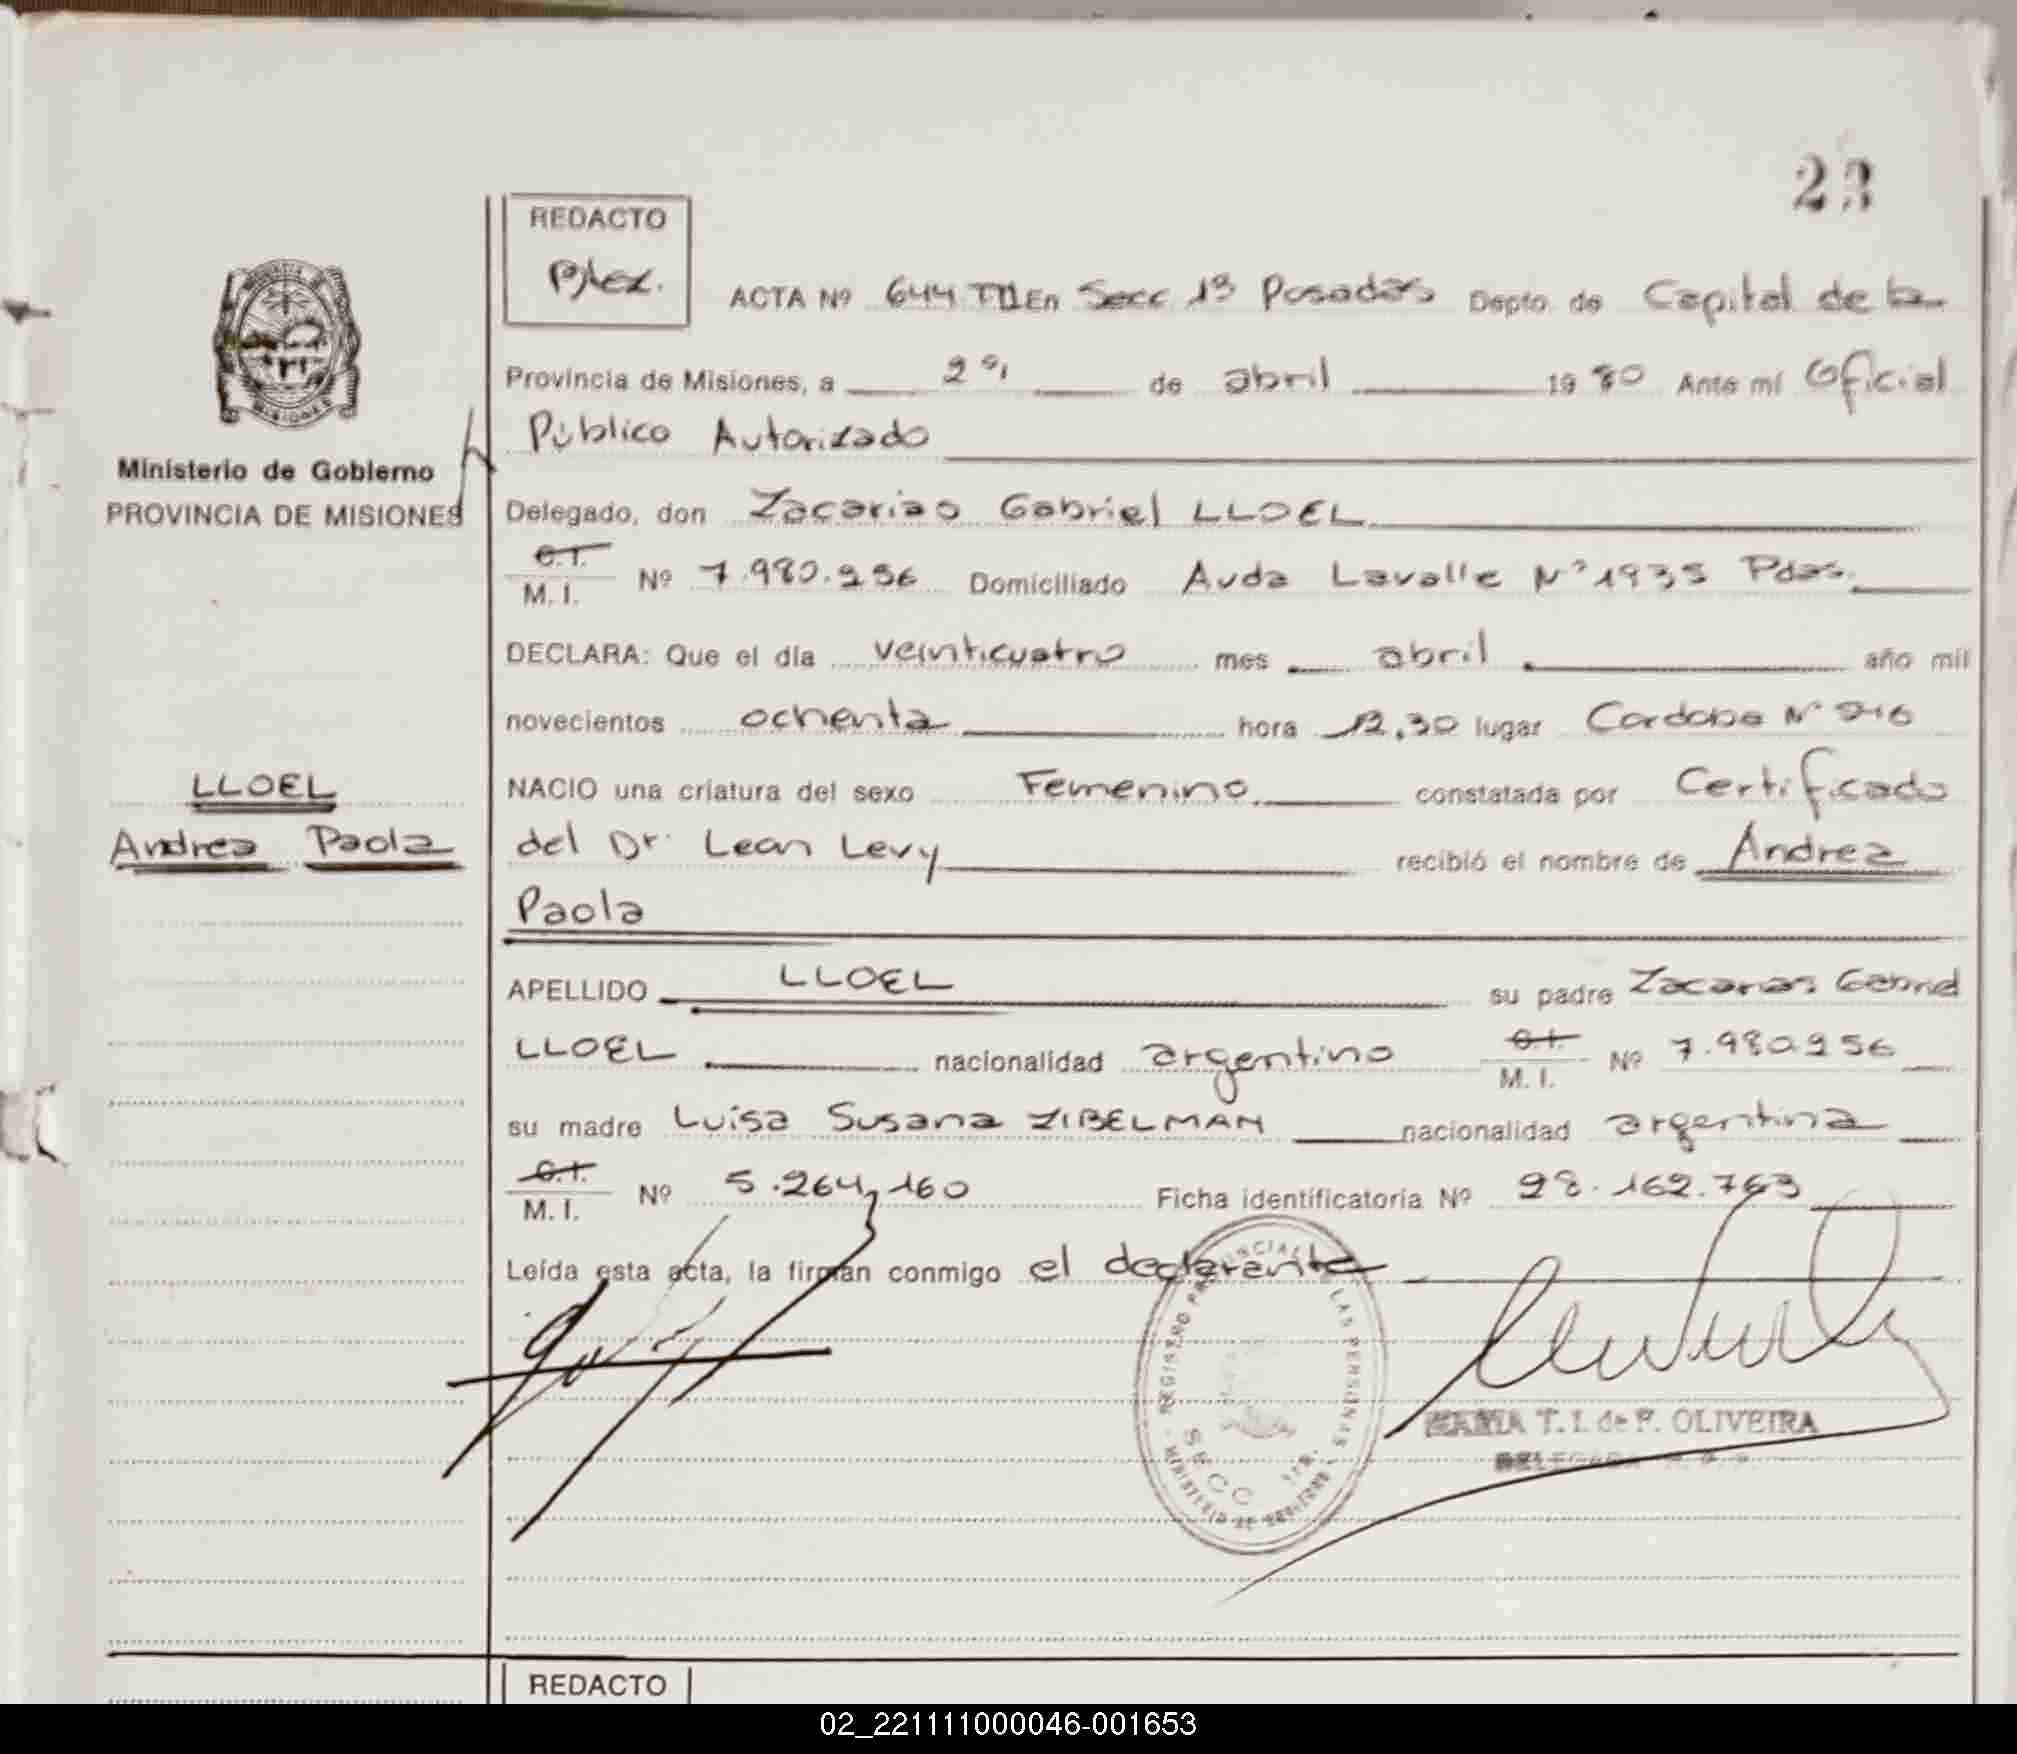 23
REDACTO
ACTA Nº 644 TII En Secc 1ª Posadas Depto. de Capital de la
Provincia de Misiones, a de abril 1980 Ante mí Oficial
Público Autorizado
Ministerio de Gobierno
PROVINCIA DE MISIONES
Delegado, don Zacarias Gabriel LLOEL
C.I.
M. I. Nº 7.980.256 Domiciliado Avda Lavalle Nº 1935 Pdas.
DECLARA: Que el día veinticuatro mes abril año mil
novecientos ochenta hora 12,30 lugar Cordoba Nº
LLOEL
Andrea Paola
NACIO una criatura del sexo Femenino constatada por Certificado
del Dr. Leon Levy recibió el nombre de Andrea
Paola
APELLIDO LLOEL su padre Zacarias Gabriel
LLOEL nacionalidad argentino C.I.
M. I. Nº 7.980.256
su madre Luisa Susana ZIBELMAN nacionalidad argentina
C.I.
M. I. Nº 5.264.160 Ficha identificatoria Nº 28.162.763
Leída esta acta, la firman conmigo el declarante
REGISTRO PROVINCIAL DE LAS PERSONAS
SECC 1ra.
MINISTERIO DE GOBIERNO
MARIA T. I. de F. OLIVEIRA
DELEGADA
REDACTO
02_221111000046-001653